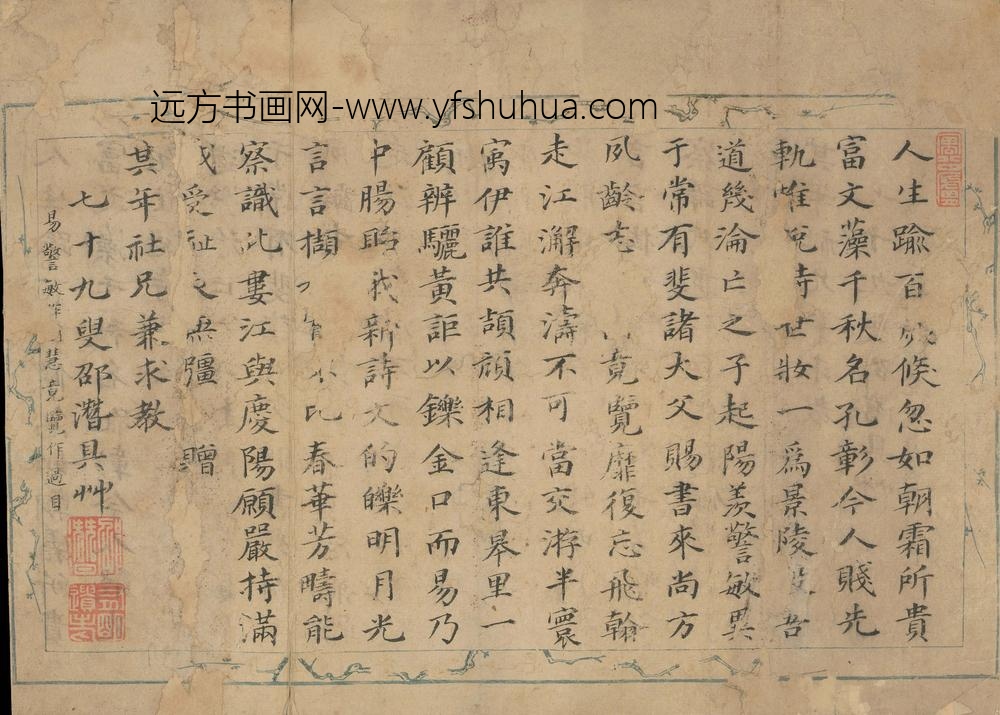 远方书画网-www.yfshuhua.com
人生踰百 倏忽如朝霜所貴
富文藻千秋名孔彰今人賤先
軌唯 世妝一為景陵 吾
道幾淪亡之子起陽羨警敏異
于常有斐諸大父賜書來尚方
夙齡志 竟覽靡復忘飛翰
走江澥奔濤不可當交游半寰
寓伊誰共頡頏相逢東皋里一
顧辨驪黃詎以鑠金口而易乃
中腸眙我新詩文的皪明月光
言言擷 春華芳疇能
察識此婁江與慶陽願嚴持滿
戒受祉 無疆 贈
其年社兄兼求教
七十九叟邵潛具艸
易警敏作 慧竟覽作過目